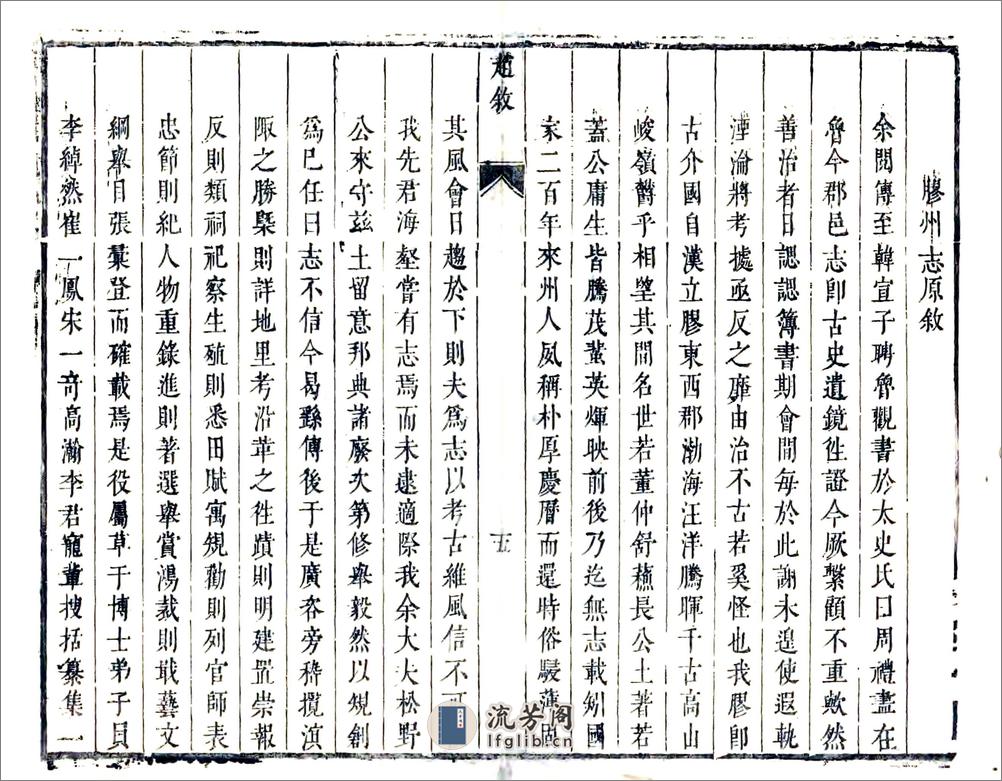 膠州志原敘
余閱傳至韓宣子聘魯觀書於太史氏曰周禮盡在
魯今郡邑志卽古史遺鏡徃證今厥繫顧不重歟然
善治者日諰諰簿書期會間每於此謝未遑使遐軌
湮淪將考據亟反之靡由治不古若奚怪也我膠卽
古介國自漢立膠東西郡渤海汪洋騰暉千古高山
峻嶺欝乎相望其間名世若董仲舒蘓長公土著若
蓋公庸生皆騰茂蜚英煇映前後乃迄無志載矧國
家二百年來州人夙稱朴厚慶曆而還時俗駸
趙敘
五
其風會日趨於下則夫爲志以考古維風信不可
我先君海壑嘗有志焉而未逮適際我余大夫松野
公來守兹土留意邦典諸廢次第修舉毅然以䂓創
爲已任曰志不信今曷繇傳後于是廣咨旁稡攬演
陬之勝槩則詳地里考沿革之徃蹟則明建置崇報
反則類祠祀察生殖則悉田賦寓䂓勸則列官師表
忠節則紀人物重錄進則著選舉賞鴻裁則戢藝文
綱舉目張彚登而確載焉是役屬草于博士弟子貟
李綽然崔一鳳宋一竒高瀚李君寵軰搜括纂集一
流芳阁
lfglib.cn